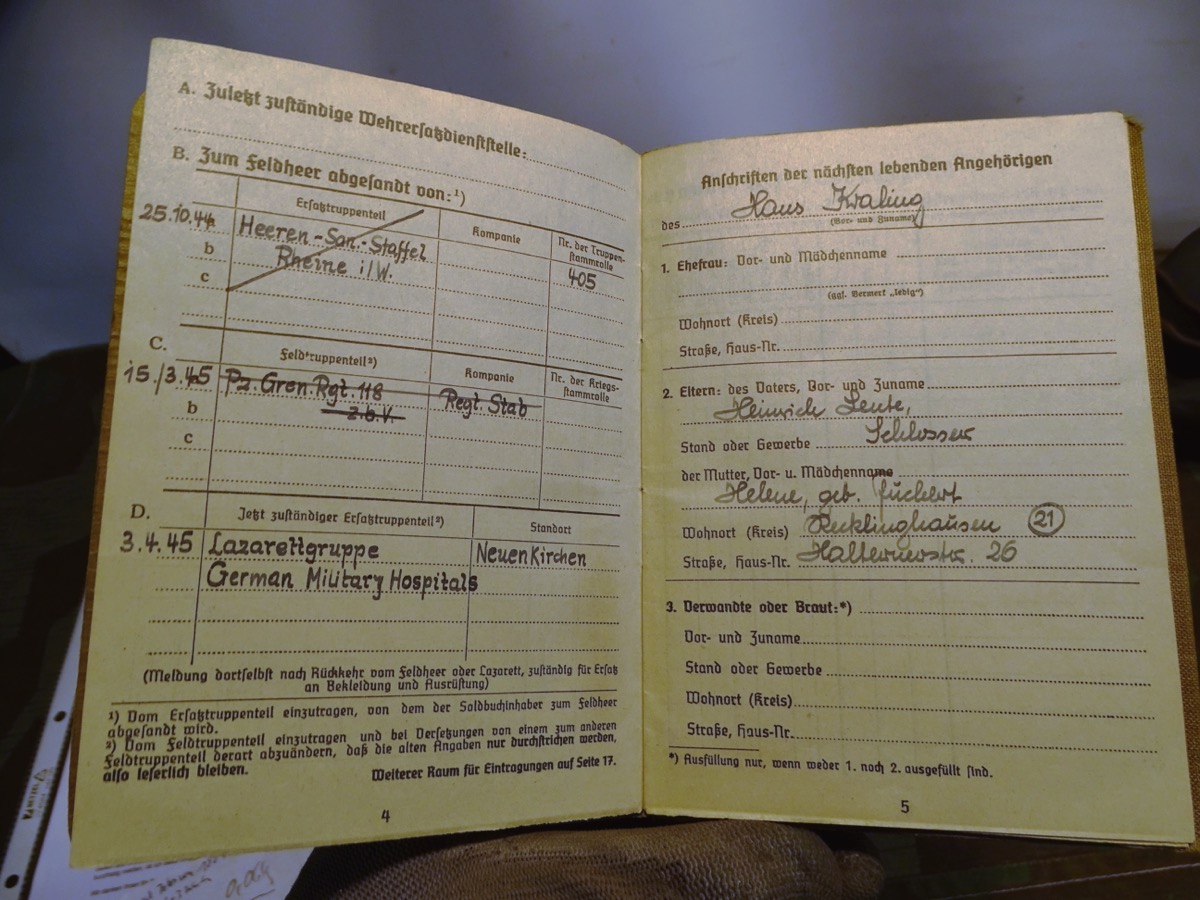 A. Zuletzt zuständige Wehrersatzdienststelle:
B. Zum Feldheer abgesandt von:¹)
Ersatztruppenteil Kompanie Nr. der Truppen-
stammrolle
25.10.44 Heeren-San.-Staffel
b Rheine i/W. 405
c
C.
Feldtruppenteil²) Kompanie Nr. der Kriegs-
stammrolle
15./3.45 Pz. Gren. Rgt. 118 Regt. Stab
b z.b.V.
c
D. Jetzt zuständiger Ersatztruppenteil²) Standort
3.4.45 Lazarettgruppe Neuenkirchen
German Military Hospitals
(Meldung dortselbst nach Rückkehr vom Feldheer oder Lazarett, zuständig für Ersatz
an Bekleidung und Ausrüstung)
¹) Vom Ersatztruppenteil einzutragen, von dem der Soldbuchinhaber zum Feldheer
abgesandt wird.
²) Vom Feldtruppenteil einzutragen und bei Versetzungen von einem zum anderen
Feldtruppenteil derart abzuändern, daß die alten Angaben nur durchstrichen werden,
also leserlich bleiben.
Weiterer Raum für Eintragungen auf Seite 17.
4
Anschriften der nächsten lebenden Angehörigen
des Hans Kraling
(Vor- und Zuname)
1. Ehefrau: Vor- und Mädchenname
(ggf. Vermerk „ledig")
Wohnort (Kreis)
Straße, Haus-Nr.
2. Eltern: des Vaters, Vor- und Zuname
Heinrich Leute,
Stand oder Gewerbe Schlosser
der Mutter, Vor- u. Mädchenname
Helene, geb. Füchert
Wohnort (Kreis) Recklinghausen 21
Straße, Haus-Nr. Halternerstr. 26
3. Verwandte oder Braut:*)
Vor- und Zuname
Stand oder Gewerbe
Wohnort (Kreis)
Straße, Haus-Nr.
*) Ausfüllung nur, wenn weder 1. noch 2. ausgefüllt sind.
5